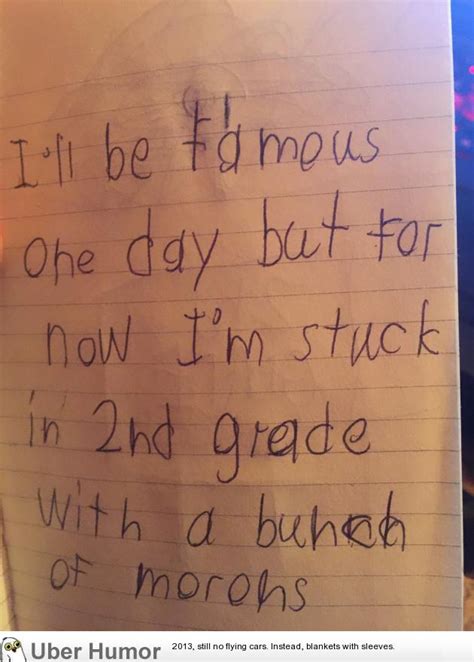 I'll be famous
one day but for
now I'm stuck
in 2nd grade
with a bunch
of morons
Uber Humor
2013, still no flying cars. Instead, blankets with sleeves.